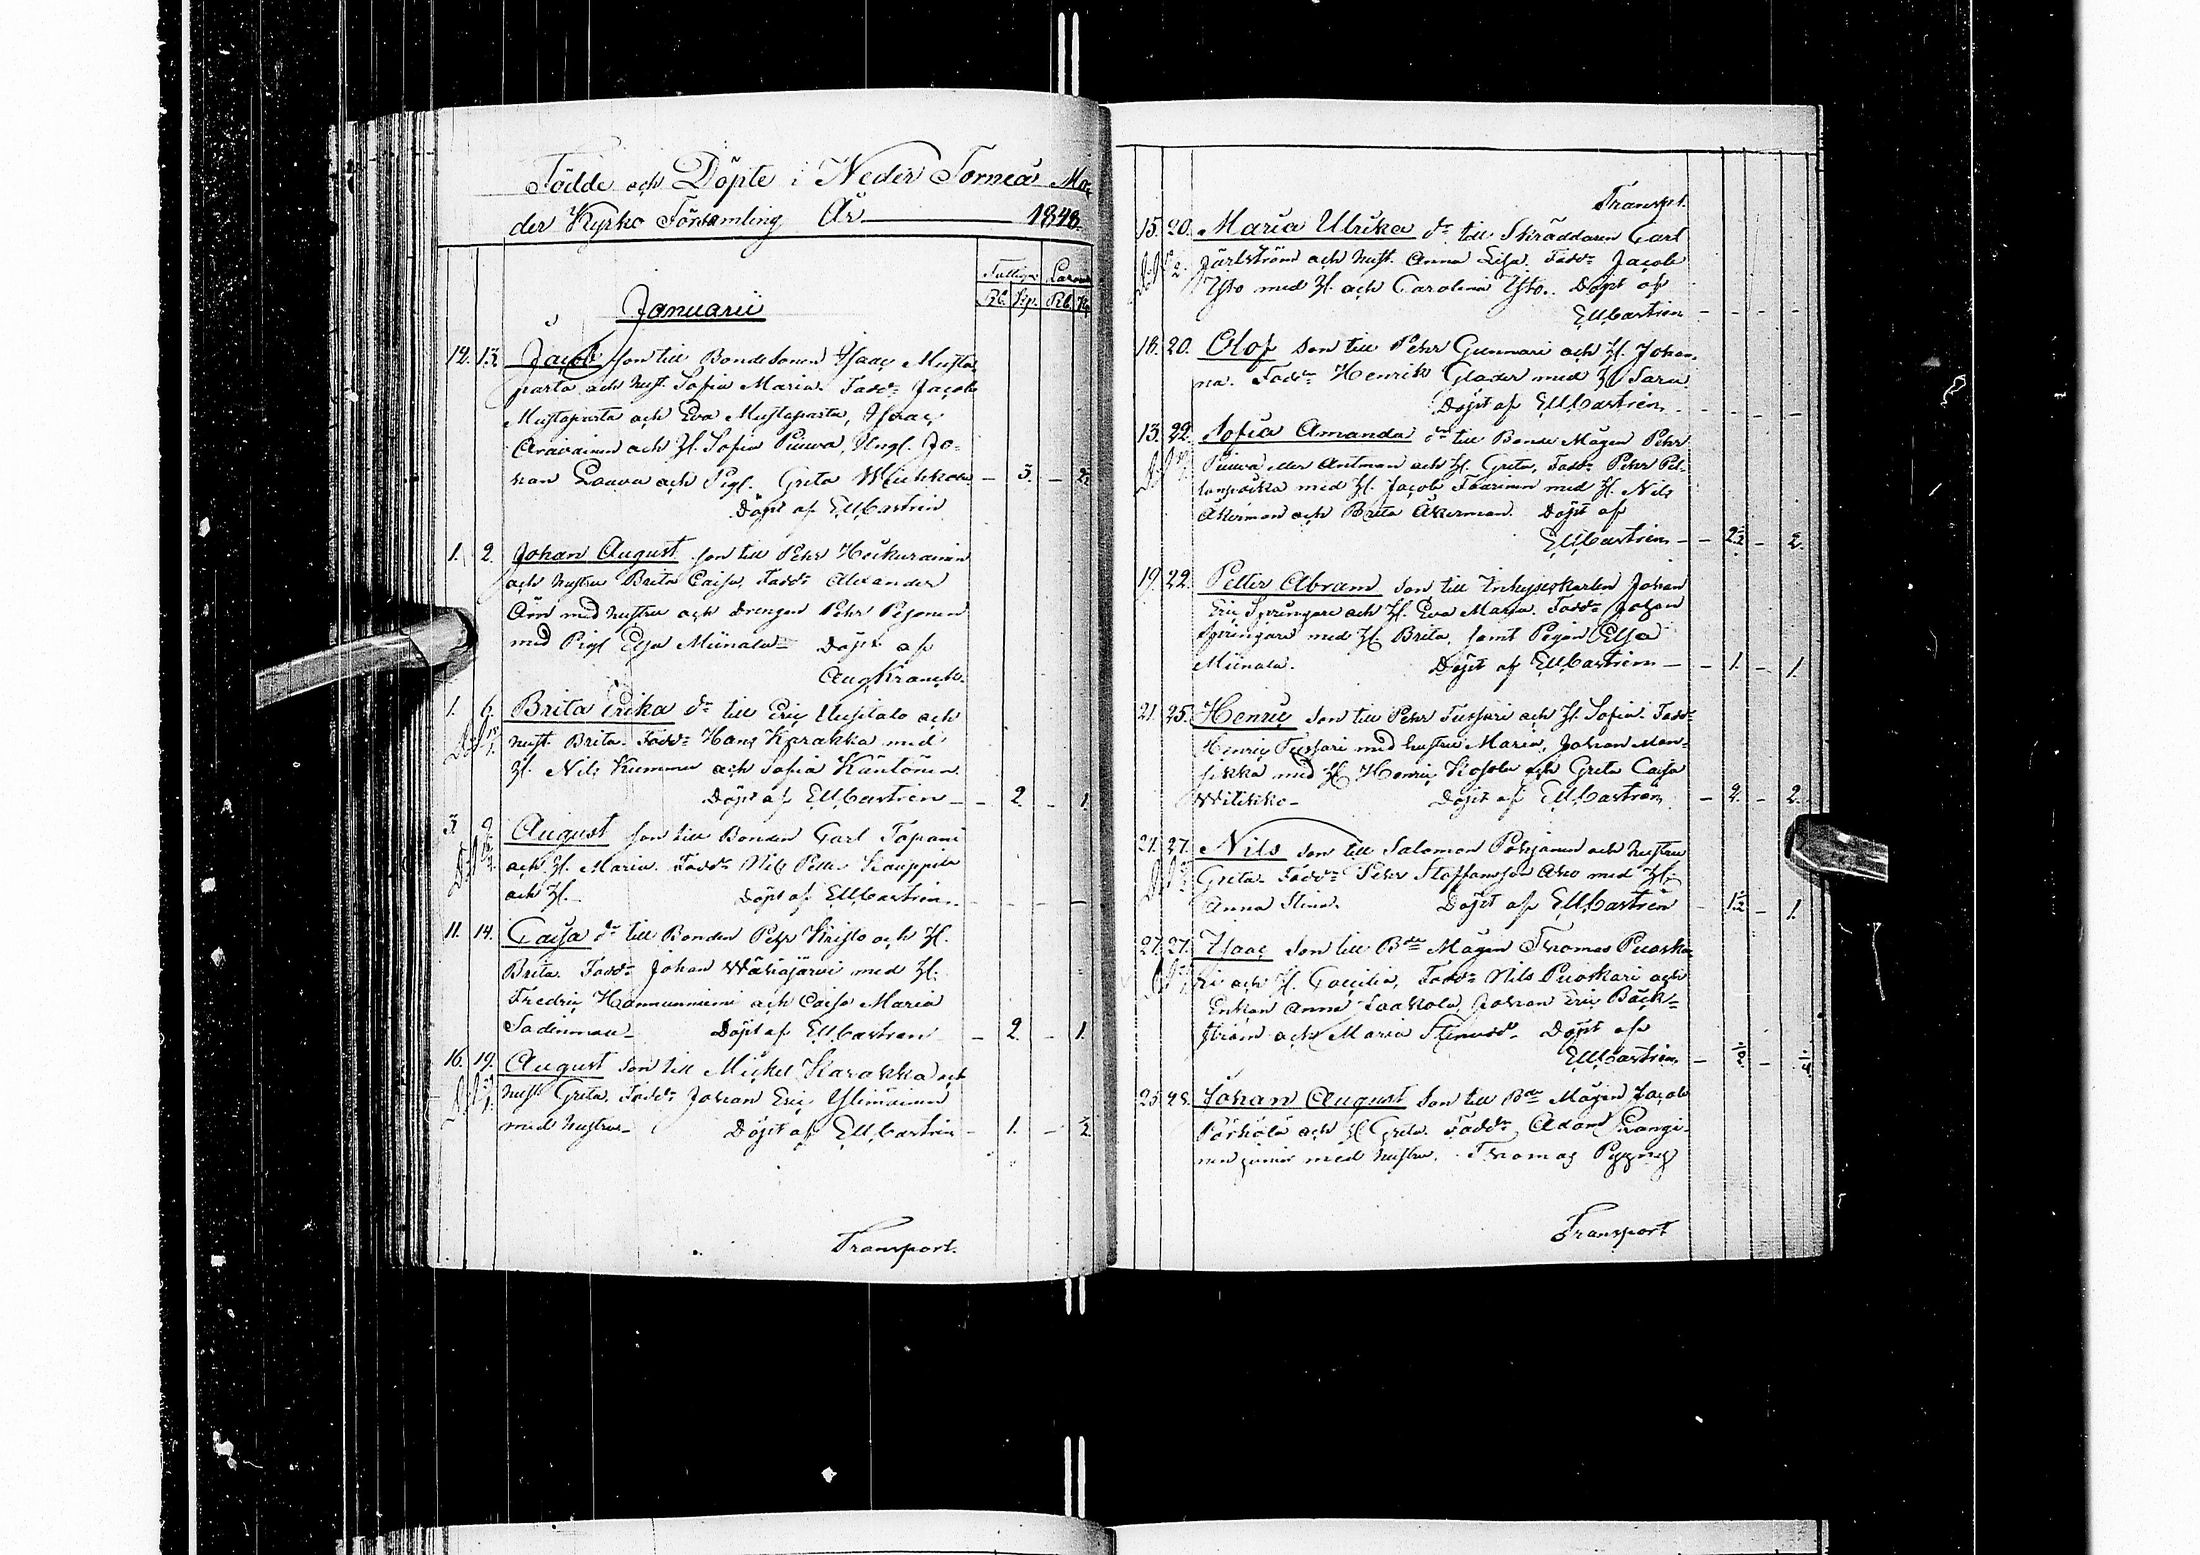 Födde och Döpte i Neder Torneå Mo-
der Kyrko Församling År 1848.
Fattiga Lazar
Rb. Kp. Rb. Kp
Januarii
12. 13. Jacob Son till Bondesonen Isaac Musta
parta och hust. Sofia Maria. Fadd. Jacob
Mustaparta och Eva Mustaparta, Isaac
och H. Sofia Piuva, Ungl. Jo-
han Laava och Pigl. Greta - 3. - 2
Döpt af EMCastrén
1. 2. Johan August son till Pehr Heikuranin
och hustru Brita Caisa, Fadd. Alexander
med hustru och drengen Pehr Pesonen
med Pigl Elsa Miinala Döpt af
Aug Kranck.
1. 6. Brita Erika dr till Eric Uusitalo och
hust. Brita. Fadd. Hans Karakka med
H. Nils Kummu och Sofia Käntönen
Döpt af EMCastrén - - 2 - 1.
3. 9. August son till Bonden Carl Tapani
och H. Maria. Fadd. Nils Petter Kauppila
och H. Döpt af EMCastrén - - - -
11. 14. Caisa dr till Bonden Pehr Kristo och H.
Brita. Fadd. Johan Wähäjärvi med H.
Fredric Hannunniemi och Caisa Maria
Döpt af EMCastrén - 2. - 1.
16. 19. August Son till Michel Karakka och
hust Greta. Fadd. Johan Eric Ylimäinen
med hustru Döpt af EMCastrén - 1. - ½
Transport.
Transpt.
15. 20. Maria Ulrika dr till Skräddaren Carl
Järlström och hust. Anna Lisa. Fadd. Jacob
Ylsto med H. och Carolina Ylsto. Döpt af
EMCastrén - - - -
18. 20. Olof Son till Pehr Gunnari och H. Johan-
na. Fadd. Henrik Glader med H. Sara
Döpt af EMCastrén - - - -
13. 22. Sofia Amanda dr till Bonde Mågen Pehr
Piuva eller Antman och H. Greta, Fadd. Pehr
med H. Jacob Taarinen med H. Nils
Åkerman och Brita Åkerman. Döpt af
EMCastrén - - 2½ - 2.
19. 22. Petter Abram Son till Inhyseskarlen Johan
Eric Springare och H. Eva Maria. Fadd. Johan
Springare med H. Brita, samt Pigan Elsa
Miinala. Döpt af EMCastrén - - 1. - 1.
21. 25. Henric Son till Pehr Tussari och H. Sofia. Fadd.
Henric Tussari med hustru Maria, Johan Man-
sikka med H. Henric Kosola och Greta Caisa
Döpt af EMCastrén - 2. - 2.
21. 27. Nils Son till Salomon Pohjanen och hustru
Greta. Fadd. Pehr Staffansson Aho med H.
Anna Stina. Döpt af EMCastrén - 1½ - 1.
27. 27. Isaac Son till Bde Mågen Thomas Puoska
ri och H. Caecilia, Fadd. Nils Puoskari och
Enkan Anna Laakola, Johan Eric Bäck-
ström och Maria Döpt af
EMCastrén - ½ - ¼
25. 28. Johan August Son till Bde Mågen Jacob
Pörhölä och H. Greta. Fadd. Adam
junior med hustru. Thomas
Transport